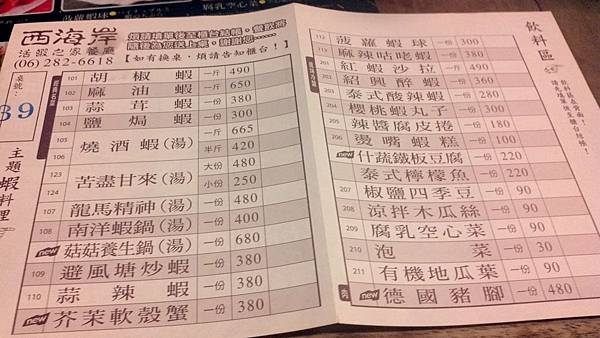 西海岸
活蝦之家餐廳
(06) 282-6618
煩請填單後至櫃台結帳，餐飲將
隨後為您送上桌，謝謝您……
【如有換桌，煩請告知櫃台！】
桌號：
39
主題蝦料理
101 胡椒蝦 一斤 490
102 麻油蝦 一斤 650
103 蒜茸蝦 一份 380
104 鹽焗蝦 一份 300
105 燒酒蝦(湯) 一斤 665
106 半斤 420
123 苦盡甘來(湯) 大份 480
124 小份 250
107 龍馬精神(湯) 一份 480
108 南洋蝦鍋(湯) 一份 400
new 菇菇養生鍋(湯) 一份 680
109 避風塘炒蝦 一份 380
110 蒜辣蝦 一份 380
new 芥茉軟殼蟹 一份 380
112 菠蘿蝦球 一份 300
113 麻辣咕嗞蝦 一份 380
201 紅蝦沙拉 一斤 490
202 紹興醉蝦 一份 360
203 泰式酸辣蝦 一份 280
204 櫻桃蝦丸子 一份 300
205 辣醬腐皮捲 一份 180
206 燙嘴蝦糕 一份 100
new 什蔬鐵板豆腐 一份 220
泰式檸檬魚 一份 220
207 椒鹽四季豆 一份 90
208 涼拌木瓜絲 一份 90
209 腐乳空心菜 一份 90
210 泡菜 一份 30
211 有機地瓜葉 一份 90
new 德國豬腳 一份 480
飲料區
飲料區在背面！
請先填單後至櫃台結帳！